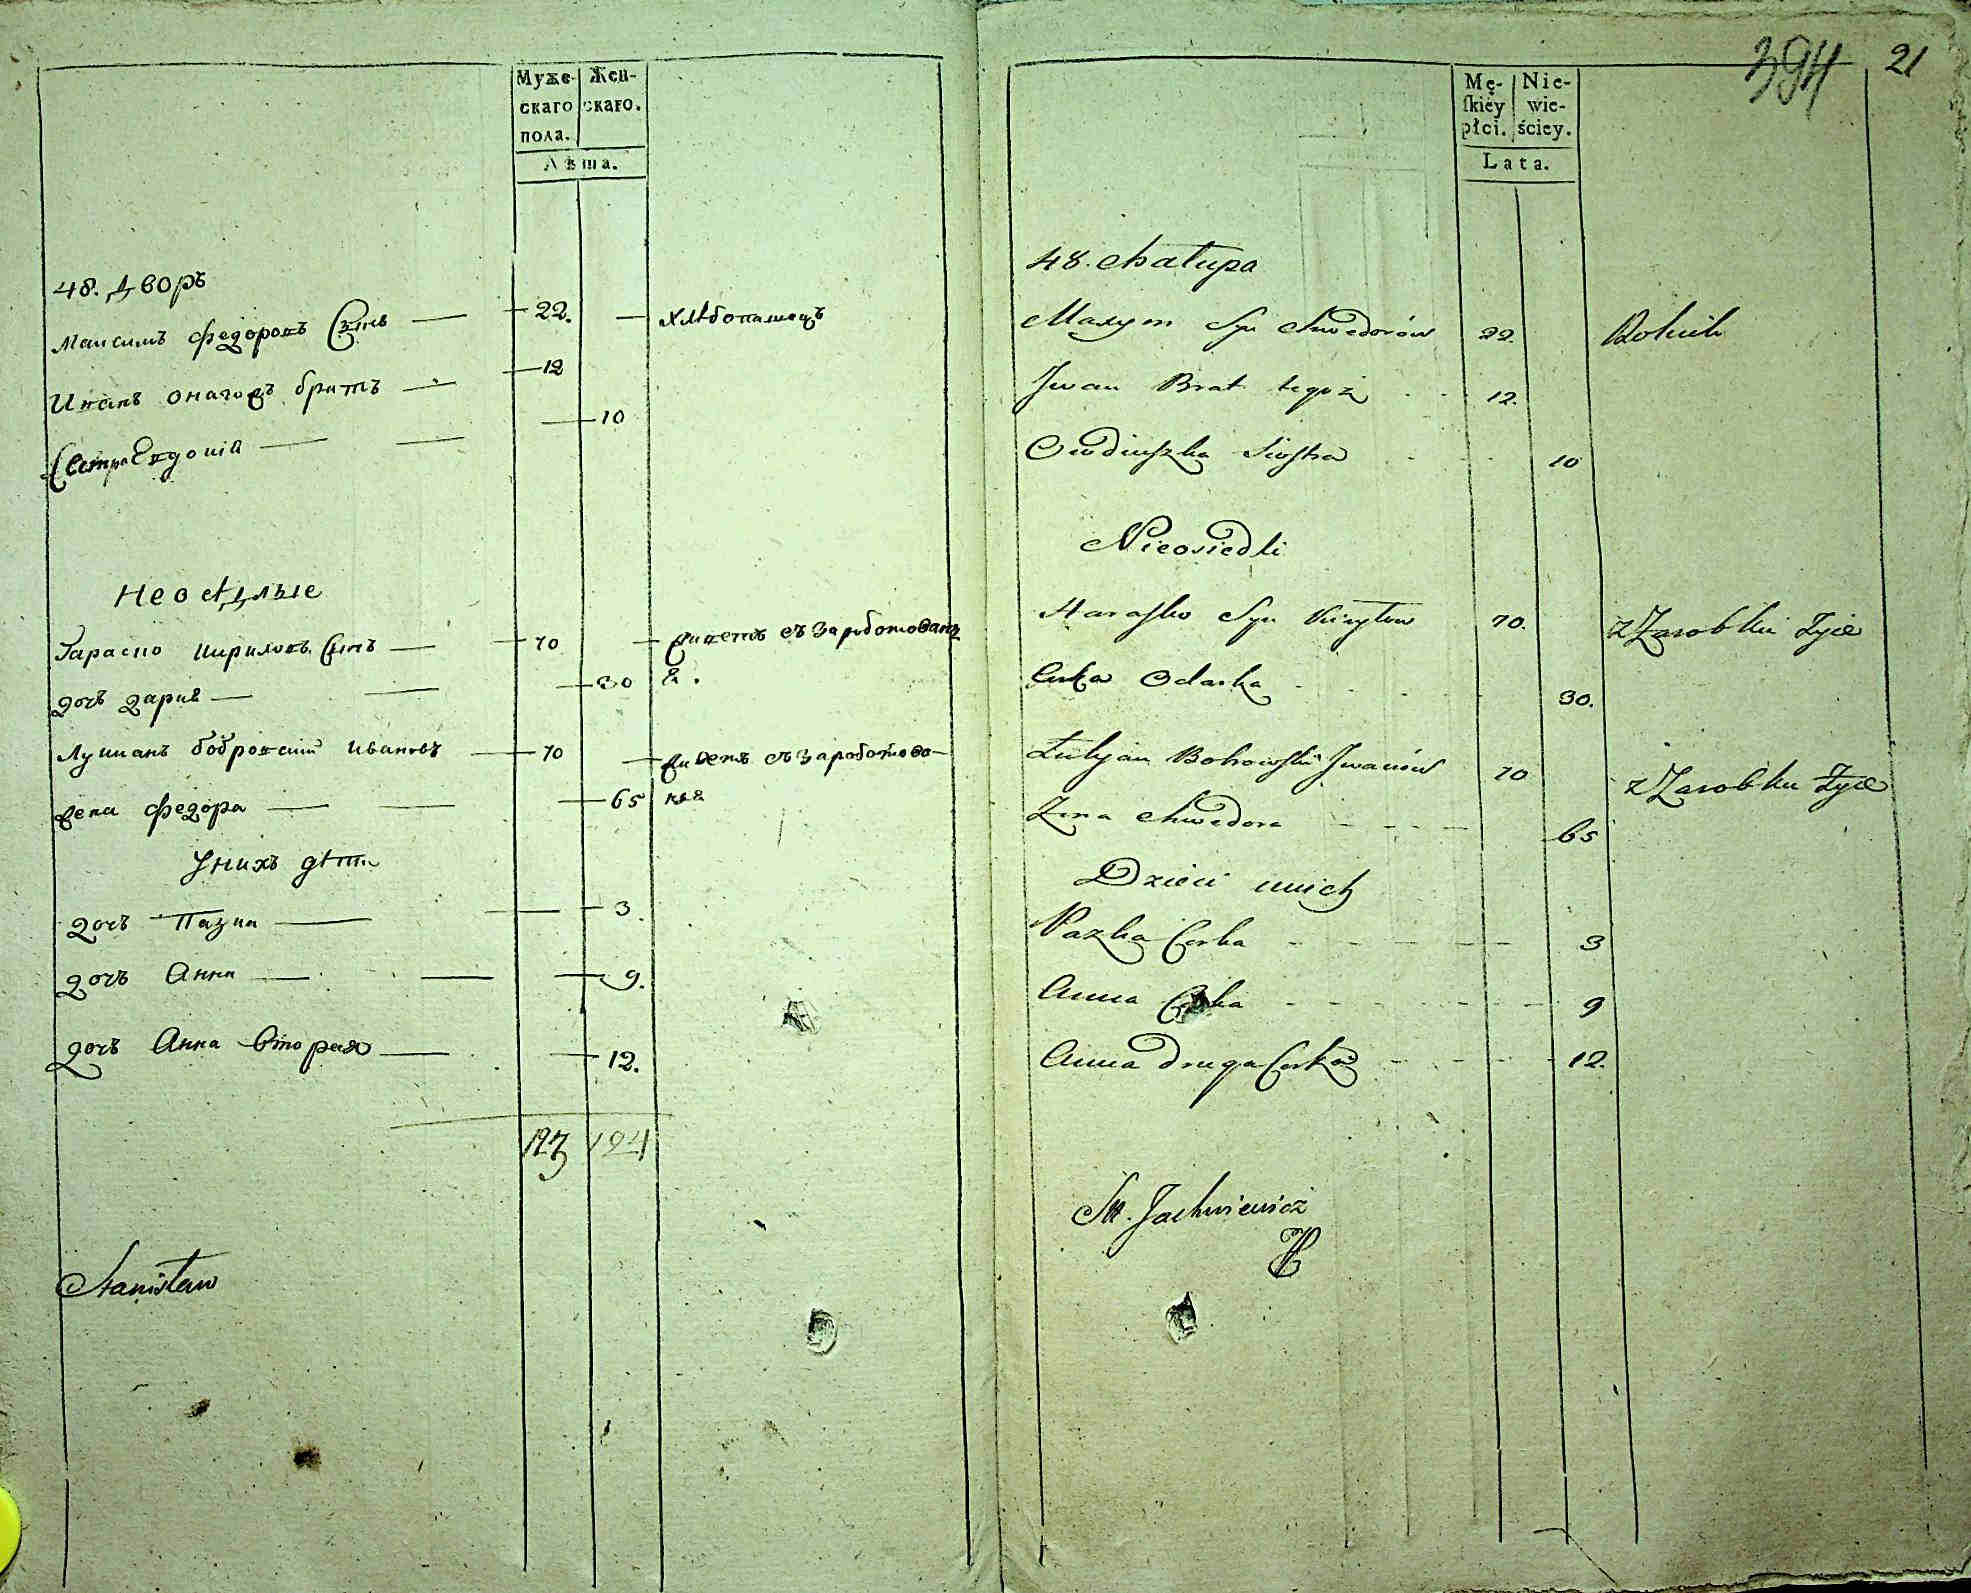 Муже-
скаго
пола.
Жен-
скаго.
Лѣта.
48. Дворъ
Максимъ Федоровъ Сынъ 22. хлѣбопашецъ
Иванъ онагожъ братъ 12
Сестра Евдокия 10
Неосѣдлые
Тараско Кириловъ Сынъ 70 живетъ съ Заработован
я.
дочь дария 30
Лукианъ бобровский Ивановъ 70 живетъ съ Заработова-
ния
жена Федора 65
У нихъ дѣти
дочь Пазка 3.
дочь Анна 9.
дочь Анна Вторая 12.
123 124
Stanisław
394 21
Mę-
skiéy
płci.
Nie-
wie-
ściey.
Lata.
48. Chałupa
Maxym Syn Chwedorów 22. Rolnik
Jwan Brat tegoż 12.
Owdiuszka Siostra 10
Nieosiedli
Harasko Syn Kiryłow 70. z Zarobku Żyie
Curka Odarka 30.
Łukjan Bobrowski Jwanów 70 z Zarobku Żyie
Żona Chwedora 65
Dzieci unich
Pazka Corka 3
Anna Corka 9
Anna druga Corka 12.
Jachniewicz